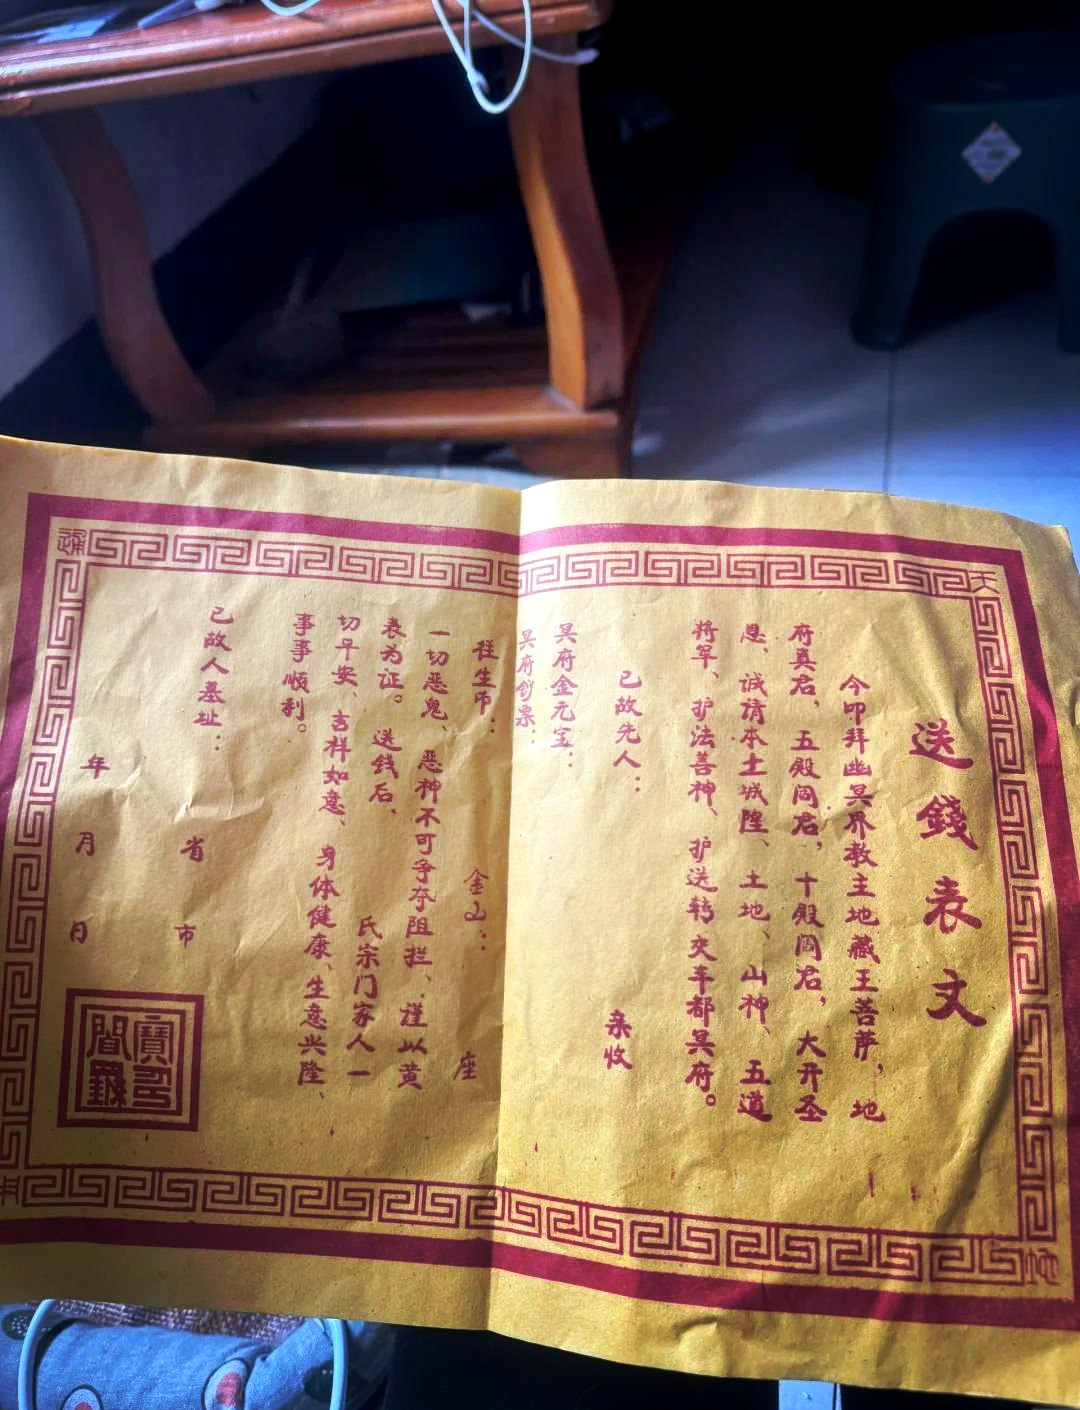 送錢表文
今叩拜幽冥界教主地藏王菩萨，地
府真君，五殿阎君，十殿阎君，大开圣
恩，诚请本土城隍、土地、山神、五道
将军、护法善神、护送转交丰都冥府。
已故先人： 亲收
冥府金元宝：
冥府钞票：
往生币： 金山： 座
一切恶鬼、恶神不可争夺阻拦、谨以黄
表为证。送钱后， 氏宗门家人一
切平安、吉祥如意、身体健康、生意兴隆、
事事顺利。
已故人墓址： 省 市
年 月 日
天
地
通